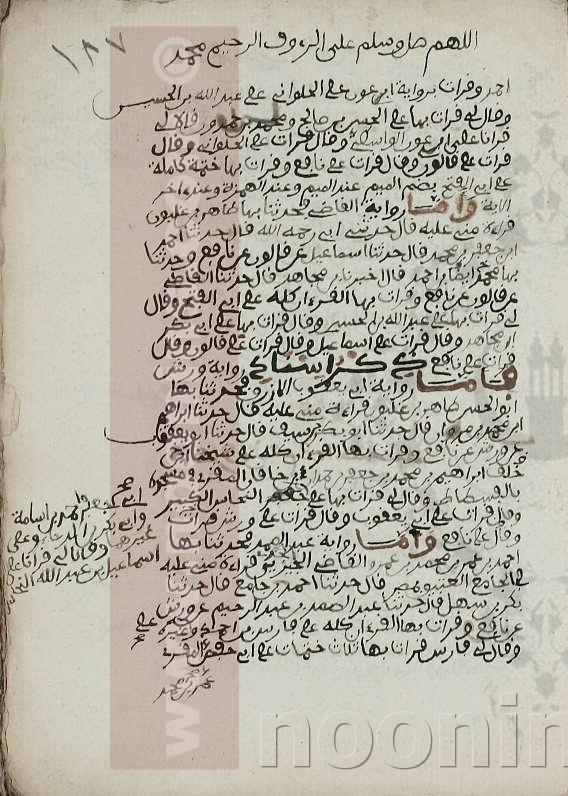 اللهم صل وسلم على الرءوف الرحيم محمد
١٨٧
احمد وقرات برواية ابي عون على الحلواني على عبد الله بن الحسين
وقال لي قرات بها على الحسن بن صالح ومحمد بن حمدون قالا لي
قرانا على ابي عون الواسطي وقال قرات على الحلواني وقال
قرات على قالون وقال قرات على نافع وقرات بها ختمة كاملة
على ابي الفتح بضم الميم عند الميم وعند الهمزة وعند اخر
الاية واما رواية القاضي فحدثنا بها طاهر بن غلبون
قراءة مني عليه قال حدثني ابي رحمه الله قال حدثنا احمد
ابن جعفر بن محمد قال حدثنا اسماعيل عن قالون عن نافع وحدثنا
بها محمد ايضا بن احمد قال اخبرنا بن مجاهد قال حدثنا القاضي
عن قالون عن نافع وقرات بها القرءان كله على ابي الفتح وقال
لي قرات بها على عبد الله بن الحسين وقال قرات بها على ابي بكر
ابن مجاهد وقال قرات على اسماعيل وقال قرات على قالون وقال
قرات على نافع رواية ورش
فاما رواية ابي يعقوب الازرق فحدثنا بها
ابو الحسن طاهر بن غلبون قراءة مني عليه قال حدثنا ابراهيم
ابن محمد بن مروان قال حدثنا ابو بكر بن سيف قال حدثنا ابو يعقوب
عن ورش عن نافع وقرات بها القرءان كله على شيخنا ابن
خلف بن ابراهيم بن محمد بن جعفر بن حمدان بن خاقان المقرئ في مسجده
بالفسطاط وقال لي قرات بها على النحاس الكبير
وقال لي قرات على ابي يعقوب وقال قرات على ورش
وقال على نافع واما رواية عبد الصمد فحدثنا بها
احمد بن عمر بن محمد بن عمرو القاضي الجيزي قراءة مني عليه
في الجامع العتيق بمصر قال حدثنا احمد بن جامع قال حدثنا
بكر بن سهل قال حدثنا عبد الصمد بن عبد الرحيم عن ورش
عن نافع وقرات بها القرءان كله على فارس بن احمد
وقال لي فارس قرات بها ثلاث ختمات على ابي حفص المقرئ
عمر بن محمد
ابي جعفر احمد بن اسامة
وابي بكر وعلى
غيرهما وقالا لي قرانا على
اسماعيل بن عبد الله النحاس
www
©
noonin